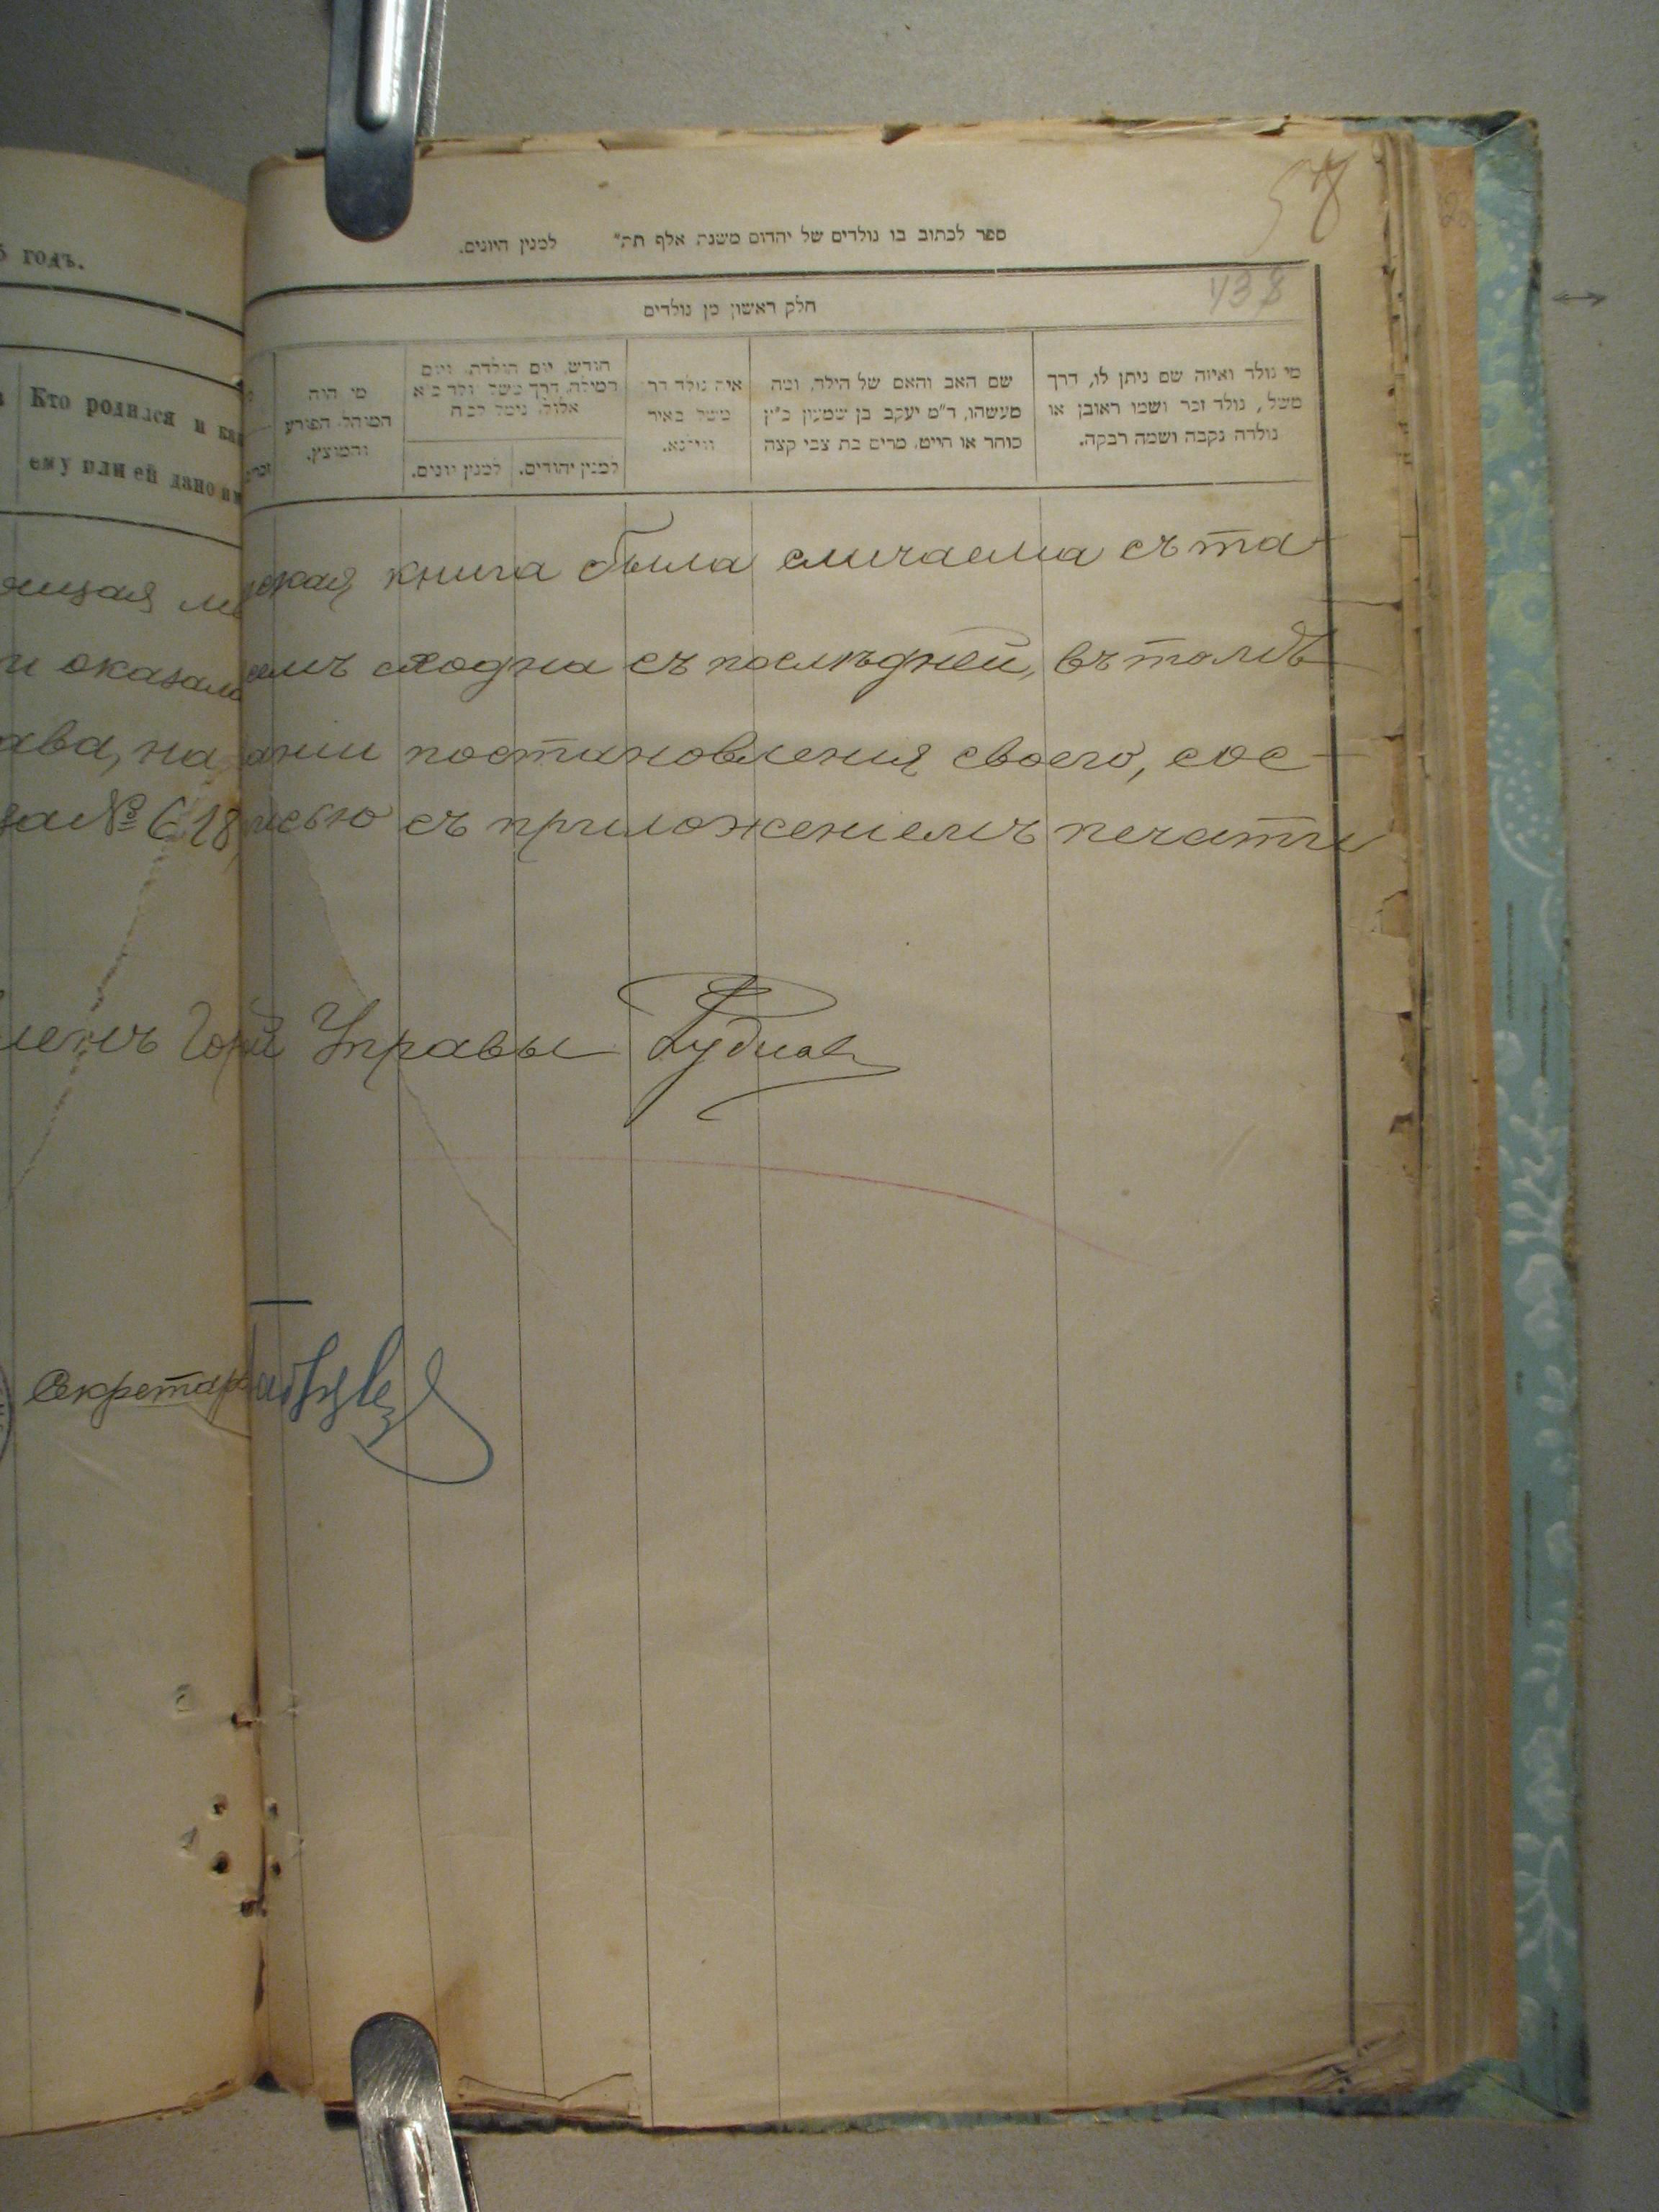 5 годъ.
Кто родился и ка
ему или ей дано и
58
ספר לכתוב בו נולדים של יהדום משנת אלף תת״ למנין היונים.
138
חלק ראשון מן נולדים
מי נולד ואיזה שם ניתן לו, דרך
משל, נולד זכר ושמו ראובן או
נולדה נקבה ושמה רבקה.
שם האב והאם של הילד, ומה
מעשהו, ד״מ יעקב בן שמעון כ״ץ
סוחר או חייט, מרים בת צבי קצה
איה נולד דר׳
משל באיר
ווילנא.
חודש, יום הולדת, ויום
המילה, דרך משל נולד ב׳א
אלול, נימל
למנין יהודים.
למנין יונים.
מי הוה
המוהל הפורע
והמוצץ.
ская книга была сличаема съ та-
емъ сходна съ послѣдней, въ томъ
ава, на ании постановленія своего, сос-
за № 618, исью съ приложеніемъ печати
ленъ Гор Управы Рудновъ
Секретарь